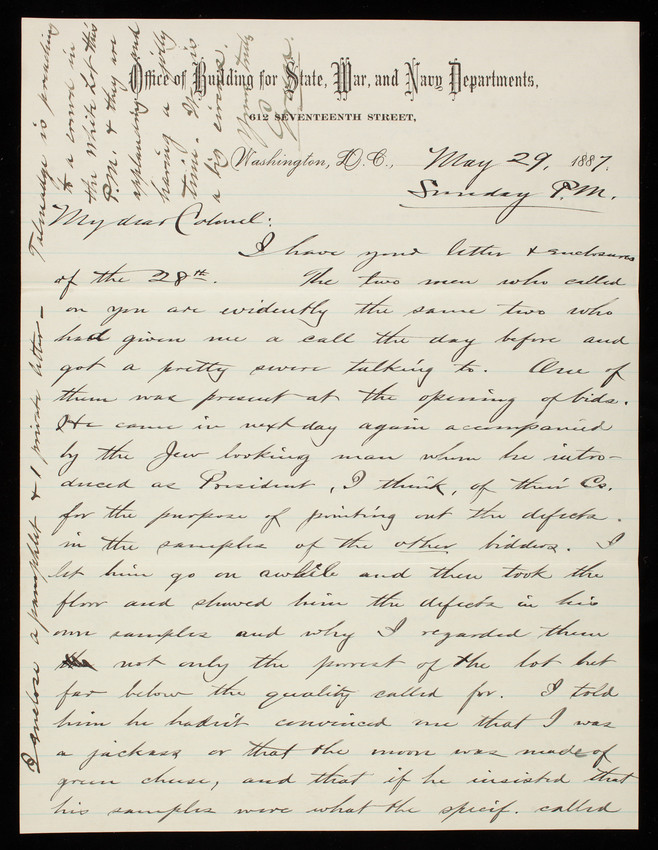 Office of Building for State, War, and Navy Departments,
612 SEVENTEENTH STREET,
Washington, D.C., May 29, 1887.
Sunday P.M.
My dear Colonel:
I have your letter & enclosures
of the 28th. The two men who called
on you are evidently the same two who
had given me a call the day before and
got a pretty severe talking to. One of
them was present at the opening of bids.
He came in next day again accompanied
by the Jew looking man whom he intro-
duced as President, I think, of their Co.
for the purpose of pointing out the defects
in the samples of the other bidders. I
let him go on awhile and then took the
floor and showed him the defects in his
own samples and why I regarded them
not only the poorest of the lot but
far below the quality called for. I told
him he hadn't convinced me that I was
a jackass or that the moon was made of
green cheese, and that if he insisted that
his samples were what the specif. called
I enclose a pamphlet & 1 private letter –
Talmadge is preaching
to a crowd in
the White Lot this
P.M. & they are
applauding and
having a jolly
time. It is
a big circus.
Yours truly